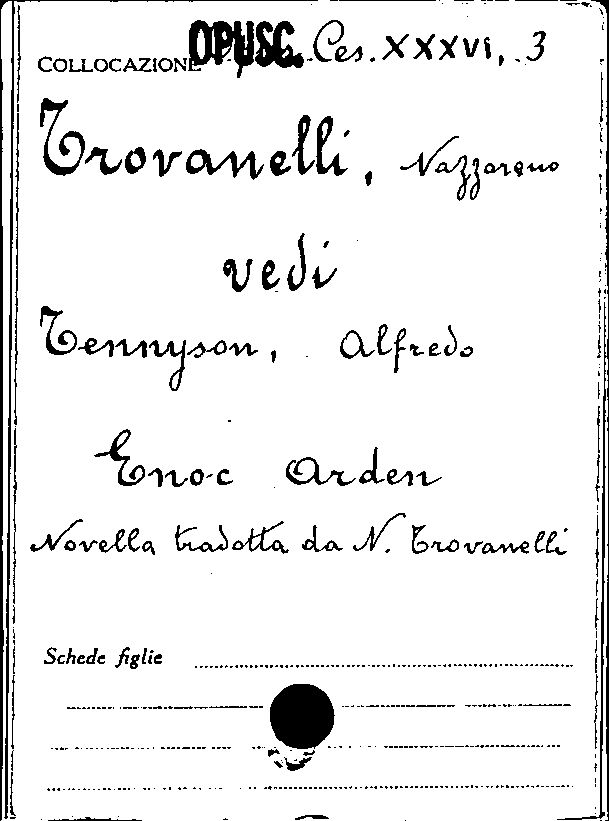 COLLOCAZIONE OPUSC. Ces. XXXVI, 3
Trovanelli, Nazzareno
vedi
Tennyson, Alfredo
Enoc Arden
Novella tradotta da N. Trovanelli
Schede figlie